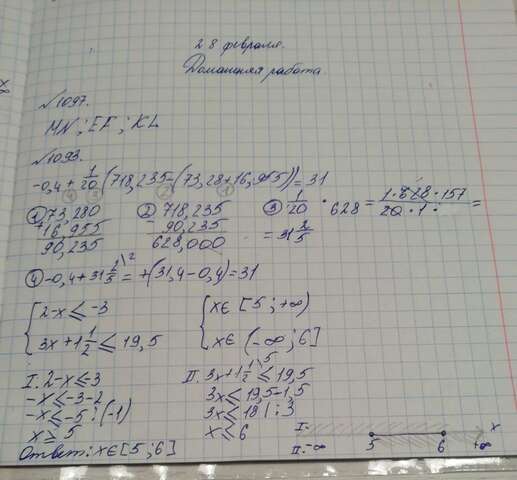 28 февраля.
Домашняя работа.
№1097.
MN ; EF ; KL
№1093.
-0,4 + 1/20 (718,235 - (73,28 + 16,955)) = 31
① 73,280 + 16,955 = 90,235
② 718,235 - 90,235 = 628,000
③ 1/20 · 628 = 1·628·157 / 20·1 =
= 31 2/5
④ -0,4 + 31 2/5 = +(31,4 - 0,4) = 31
{ 2-x ≤ -3
3x + 1 1/2 ≤ 19,5
{ x ∈ [5 ; +∞)
x ∈ (-∞ ; 6]
I. 2-x ≤ -3
-x ≤ -3-2
-x ≤ -5 : (-1)
x ≥ 5
II. 3x + 1 1/2 ≤ 19,5
3x ≤ 19,5 - 1,5
3x ≤ 18 | : 3
x ≤ 6
I:
II: -∞ 5 6 +∞ x
Ответ: x ∈ [5 ; 6]